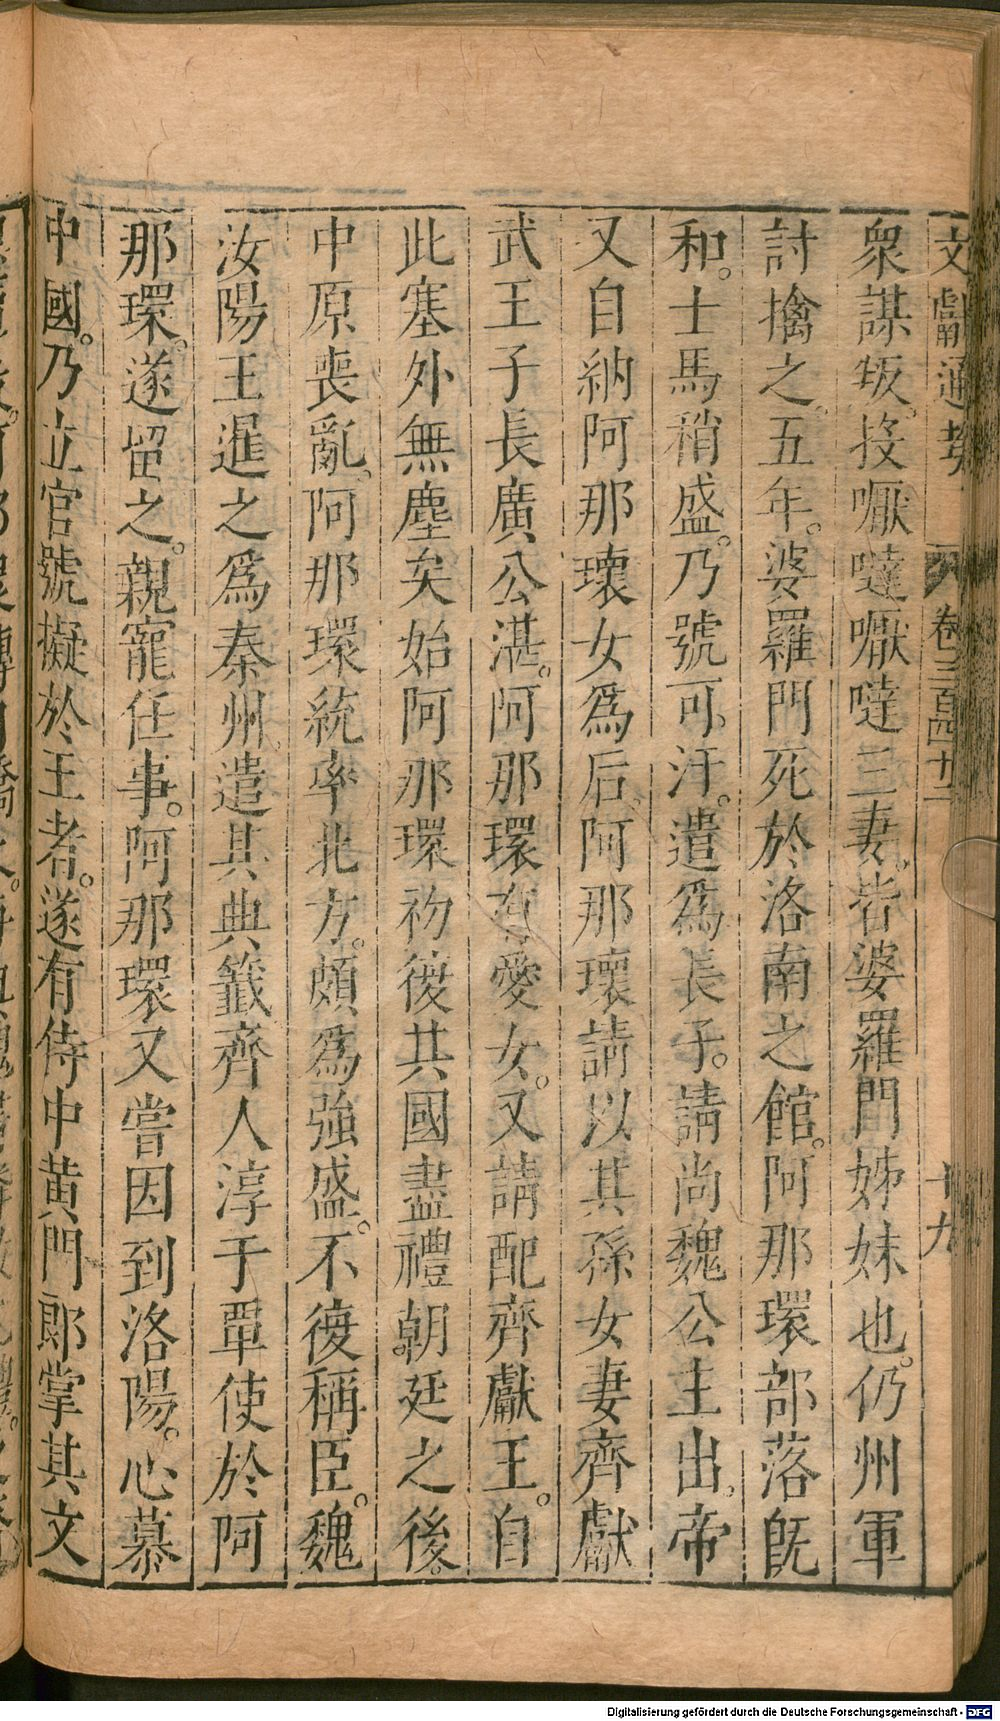 文獻通考 卷三百四十二 十九
衆謀叛。投嚈噠。嚈噠三妻。皆婆羅門姊妹也。仍州軍
討擒之。五年。婆羅門死於洛南之館。阿那環部落旣
和。士馬稍盛。乃號可汗。遣爲長子。請尚魏公主出。帝
又自納阿那壞女爲后。阿那壞請以其孫女妻齊獻
武王子長廣公湛。阿那環有愛女。又請配齊獻王。自
此塞外無塵矣始阿那環初復其國盡禮朝廷之後。
中原喪亂。阿那環統率北方。頗爲強盛。不復稱臣。魏
汝陽王暹之爲秦州。遣其典籤齊人淳于覃使於阿
那環。遂留之。親寵任事。阿那環又嘗因到洛陽。心慕
中國。乃立官號擬於王者。遂有侍中黄門郎掌其文
Digitalisierung gefördert durch die Deutsche Forschungsgemeinschaft - DFG